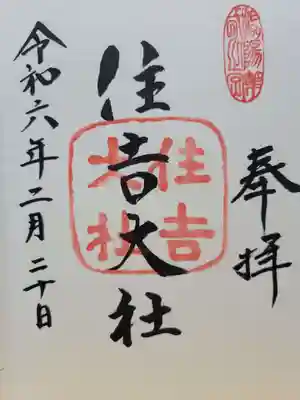 奉拝
住吉大社
住吉大社
令和六年二月二十日